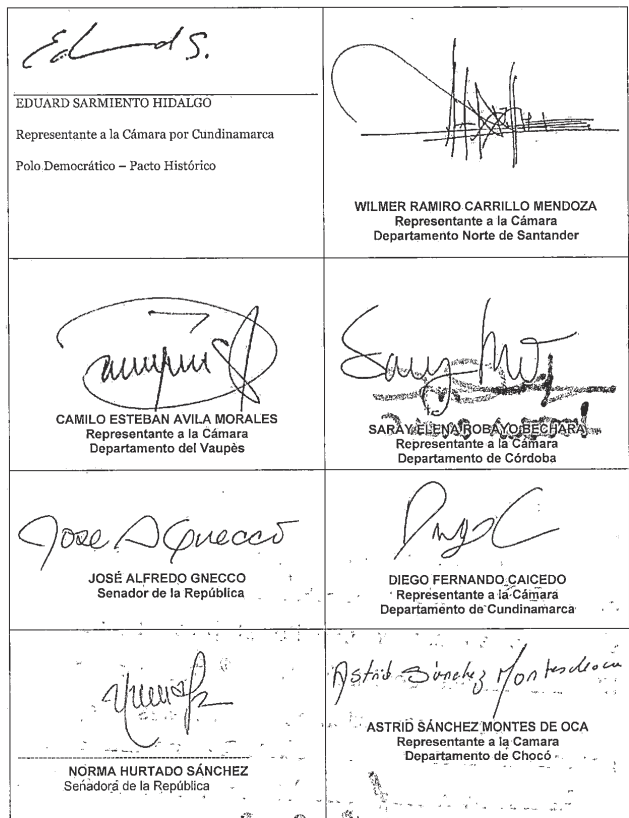 Eduard S.
EDUARD SARMIENTO HIDALGO
Representante a la Cámara por Cundinamarca
Polo Democrático – Pacto Histórico
WILMER RAMIRO CARRILLO MENDOZA
Representante a la Cámara
Departamento Norte de Santander
CAMILO ESTEBAN AVILA MORALES
Representante a la Cámara
Departamento del Vaupès
Saray
SARAY ELENA ROBAYO BECHARA
Representante a la Cámara
Departamento de Córdoba
Jose A Gnecco
JOSÉ ALFREDO GNECCO
Senador de la República
DIEGO FERNANDO CAICEDO
Representante a la Cámara
Departamento de Cundinamarca
NORMA HURTADO SÁNCHEZ
Senadora de la República
Astrid Sánchez Montesdeoca
ASTRID SÁNCHEZ MONTES DE OCA
Representante a la Camara
Departamento de Chocó